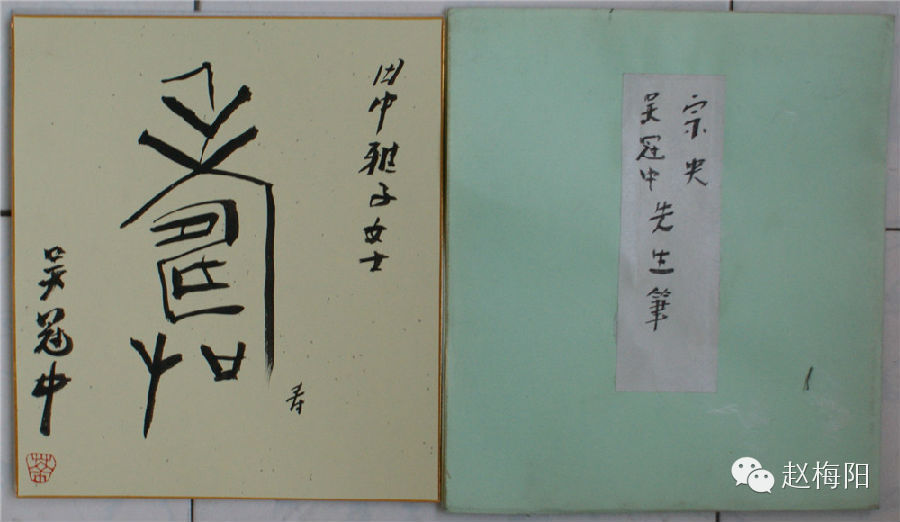 田中雅子女士
壽
寿
吴冠中
荼
宗央
吴冠中先生筆
赵梅阳